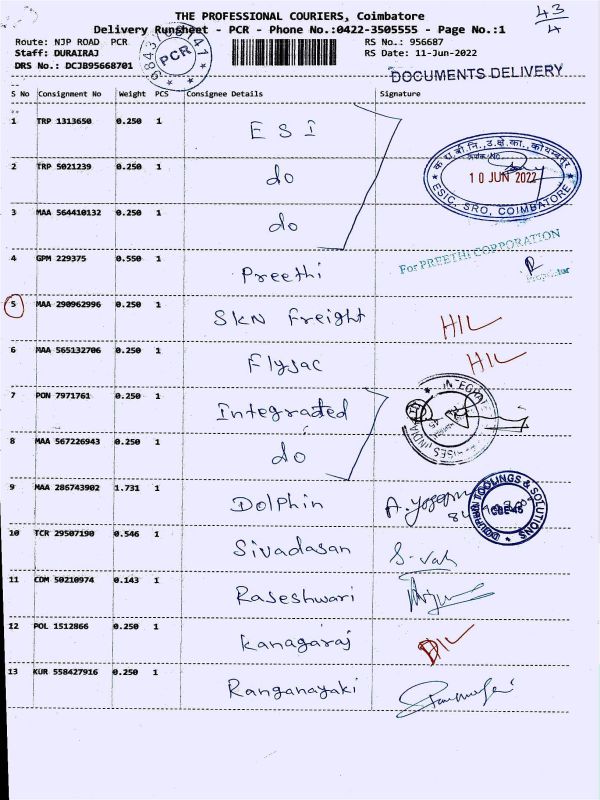 THE PROFESSIONAL COURIERS, Coimbatore
43
4
Delivery Runsheet - PCR - Phone No.:0422-3505555 - Page No.:1
Route: NJP ROAD PCR
RS No.: 956687
Staff: DURAIRAJ
RS Date: 11-Jun-2022
DRS No.: DCJB95668701
PCR
DOCUMENTS DELIVERY
S No Consignment No Weight PCS Consignee Details Signature
1 TRP 1313650 0.250 1 ESI
2 TRP 5021239 0.250 1 do
10 JUN 2022
ESIC, SRO, COIMBATORE
3 MAA 564410132 0.250 1 do
4 GPM 229375 0.550 1 Preethi
For PREETHI CORPORATION
Proprietor
5 MAA 290962996 0.250 1 SKN Freight HIL
6 MAA 565132706 0.250 1 Flyjac HIL
7 PON 7971761 0.250 1 Integrated
8 MAA 567226943 0.250 1 do
9 MAA 286743902 1.731 1 Dolphin
DOLPHIN TOOLINGS & SOLUTIONS
10 TCR 29507190 0.546 1 Sivadasan
11 CDM 50210974 0.143 1 Rajeshwari
12 POL 1512866 0.250 1 Kanagaraj
13 KUR 558427916 0.250 1 Ranganayaki